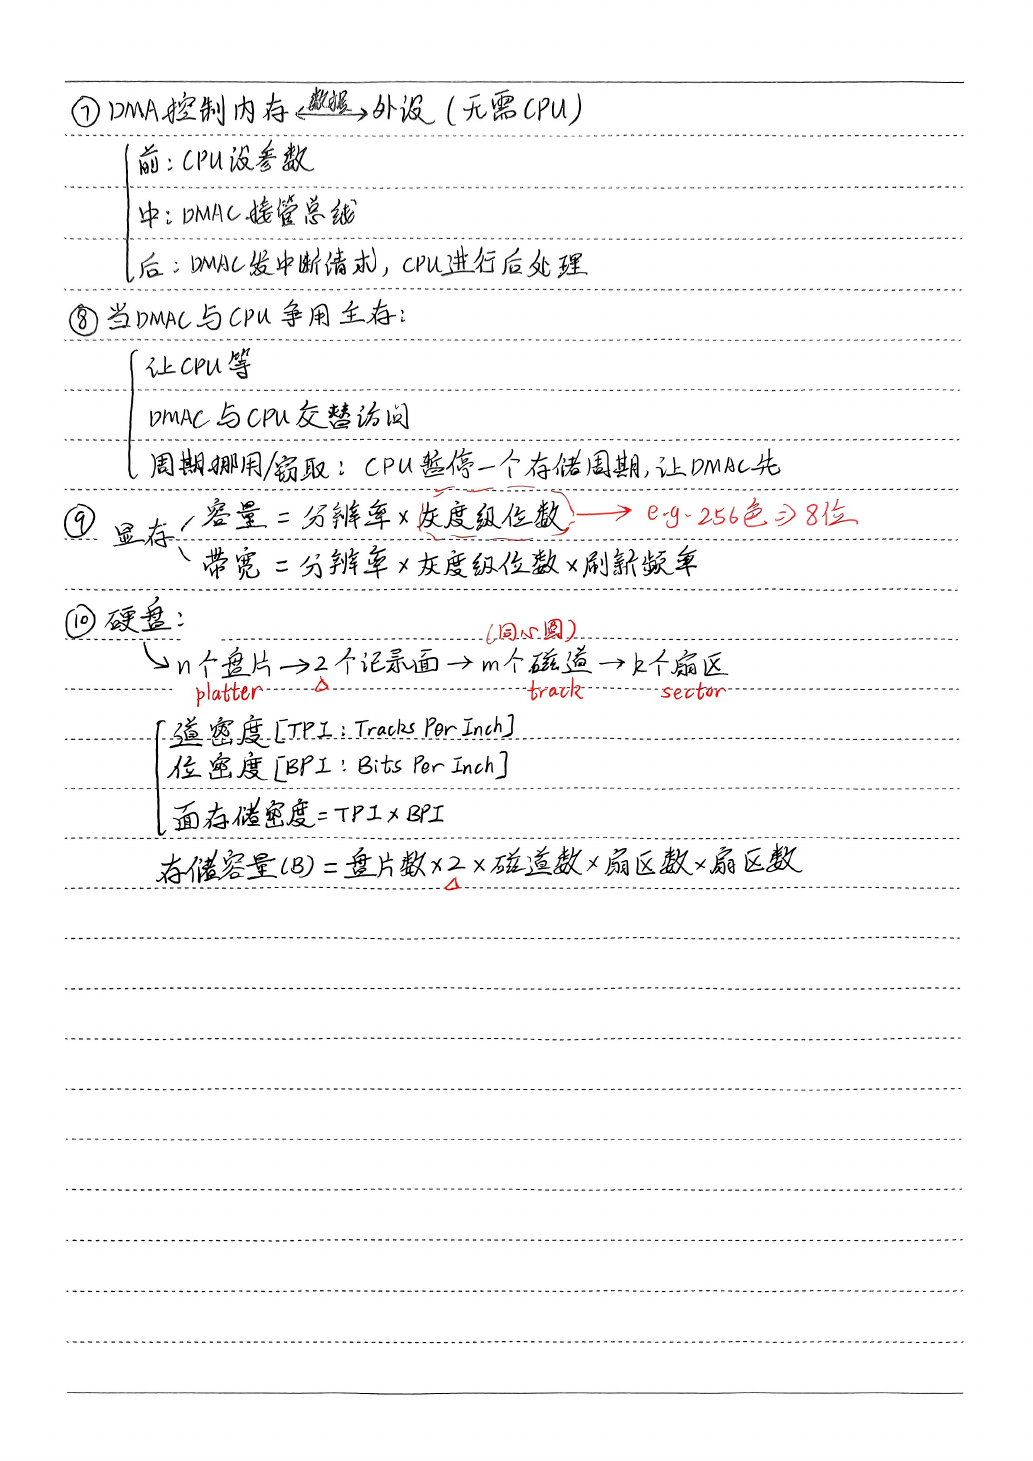 ⑦ DMA控制内存 ←数据→ 外设 (无需CPU)
前: CPU设参数
中: DMAC接管总线
后: DMAC发中断请求, CPU进行后处理
⑧ 当DMAC与CPU争用主存:
让CPU等
DMAC与CPU交替访问
周期挪用/窃取: CPU暂停一个存储周期, 让DMAC先
⑨ 显存
容量 = 分辨率 × 灰度级位数 → e.g. 256色⇒8位
带宽 = 分辨率 × 灰度级位数 × 刷新频率
⑩ 硬盘:
(同心圆)
n个盘片 → 2个记录面 → m个磁道 → k个扇区
platter △ track sector
道密度[TPI: Tracks Per Inch]
位密度[BPI: Bits Per Inch]
面存储密度 = TPI × BPI
存储容量(B) = 盘片数 × 2 × 磁道数 × 扇区数 × 扇区数
△